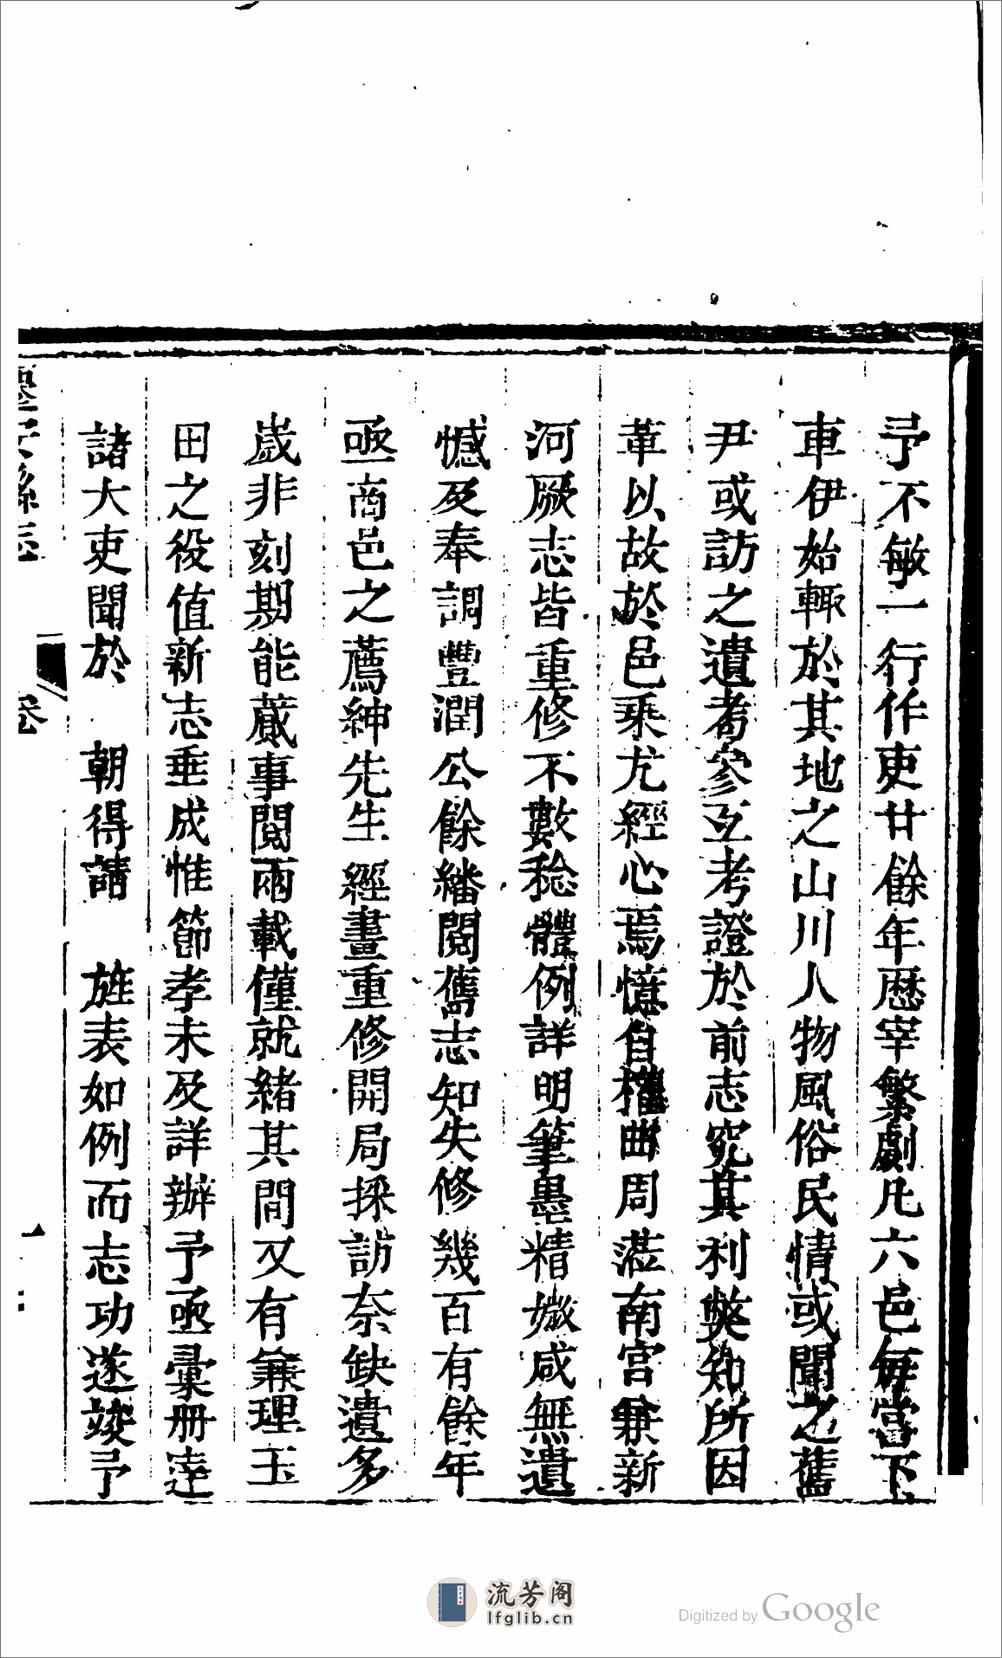 予不敏一行作吏廿餘年歷宰繁劇凡六邑每當下
車伊始輒於其地之山川人物風俗民情或聞之舊
尹或訪之遺耆參互考證於前志究其利獘知所因
革以故於邑乘尤經心焉憶自權曲周蒞南宮兼新
河厥志皆重修不數稔體例詳明筆墨精嫩咸無遺
憾及奉調豐潤公餘繙閱舊志知失修幾百有餘年
亟商邑之薦紳先生經畫重修開局採訪奈缺遺多
歲非刻期能蕆事閱兩載僅就緒其間又有兼理玉
田之役值新志垂成惟節孝未及詳辦予亟彙册達
諸大吏聞於 朝得請 旌表如例而志功遂竣予
卷
流芳阁
lfglib.cn
Digitized by Google